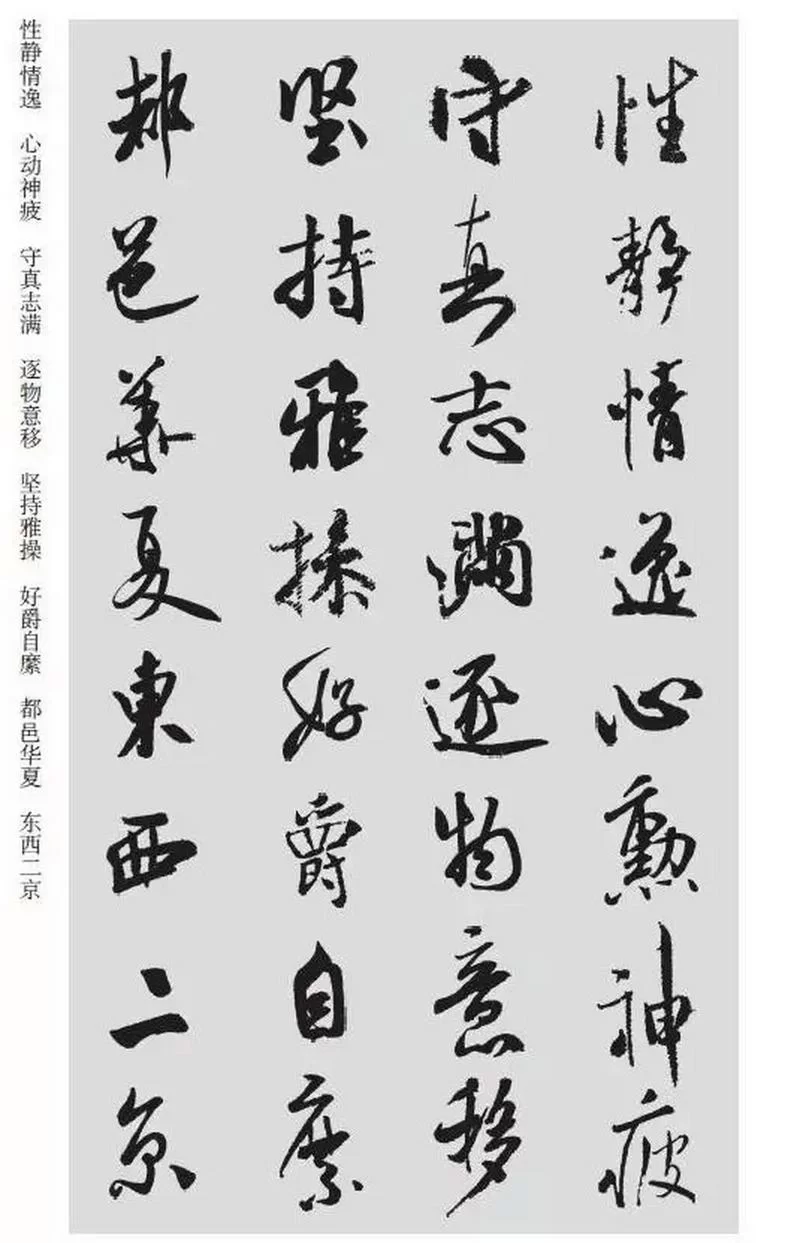 性靜情逸心動神疲
守真志滿逐物意移
堅持雅操好爵自縻
都邑華夏東西二京
性静情逸 心动神疲 守真志满 逐物意移 坚持雅操 好爵自縻 都邑华夏 东西二京